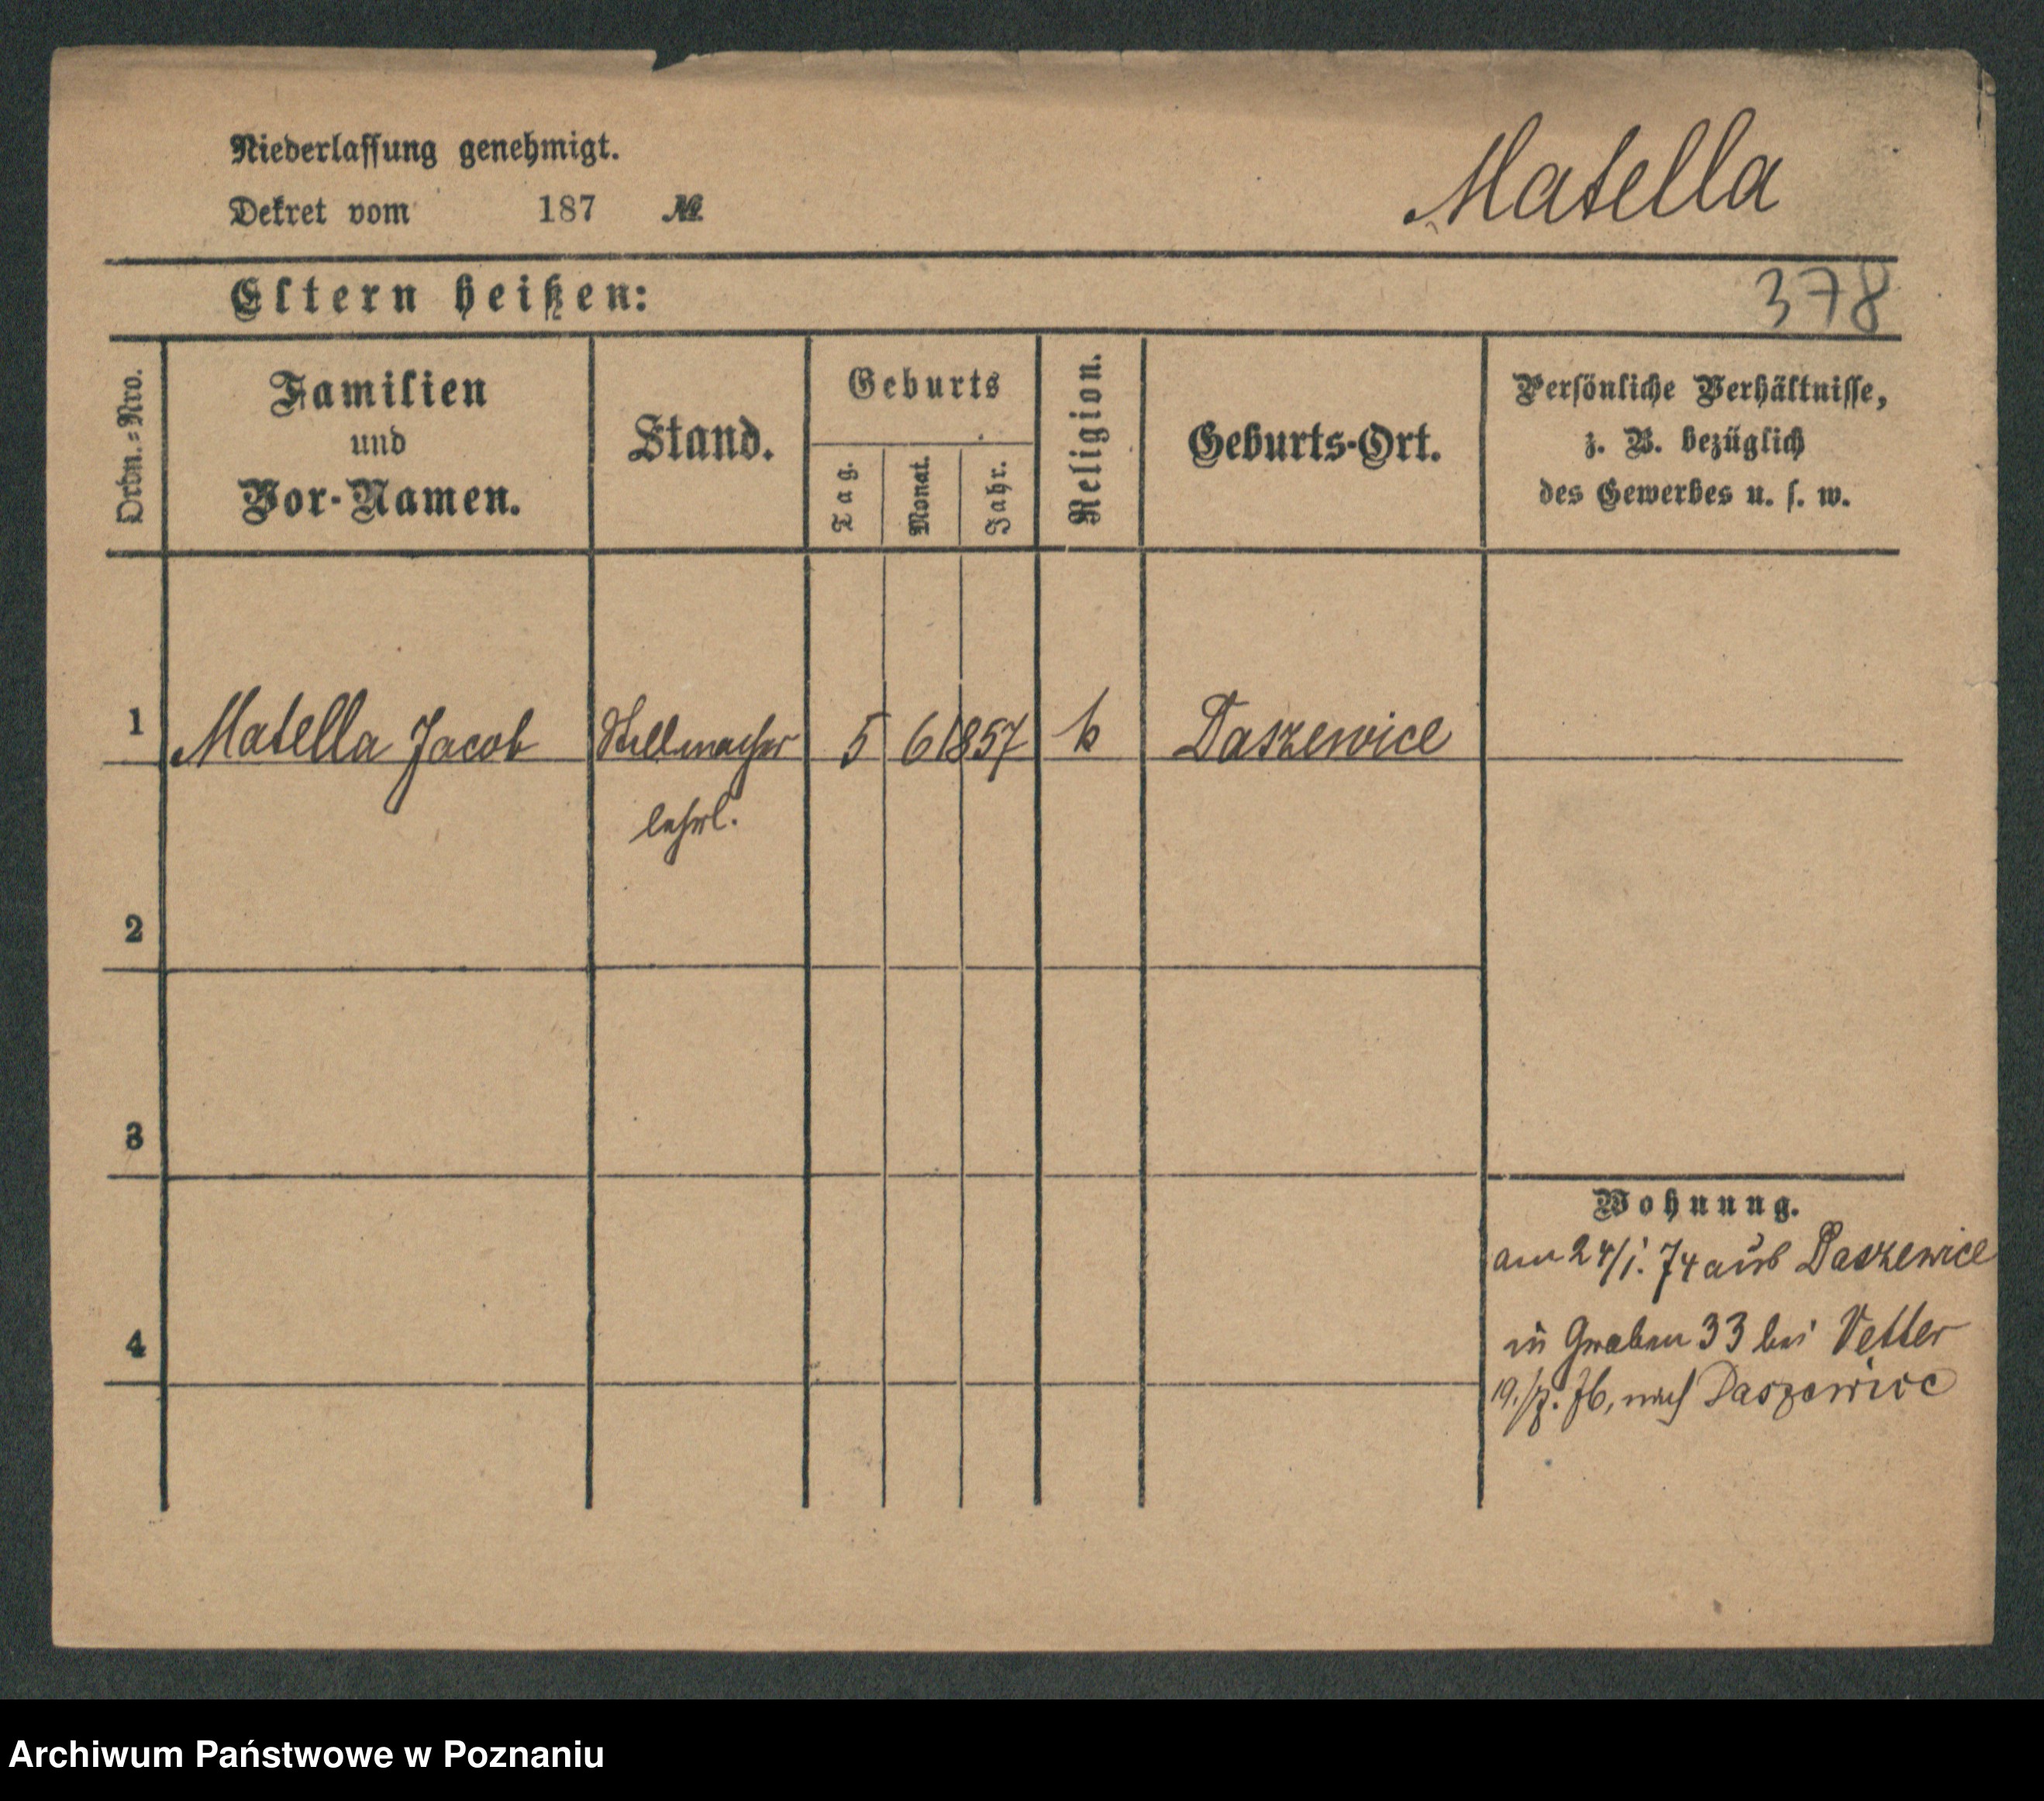 Niederlassung genehmigt.
Dekret vom 187 №
Matella
Eltern heißen:
378
Ordn.-Nro.
Familien
und
Vor-Namen.
Stand.
Geburts
Tag.
Monat.
Jahr.
Religion.
Geburts-Ort.
Persönliche Verhältnisse,
z. B. bezüglich
des Gewerbes u. s. w.
1 Matella Jacob Stellmacher 5 6 1857 k Daszewice
lehrl.
2
3
4
Wohnung.
am 24/1. 74 aus Daszewice
in Graben 33 bei Vetter
19./7. 76, nach Daszewice
Archiwum Państwowe w Poznaniu